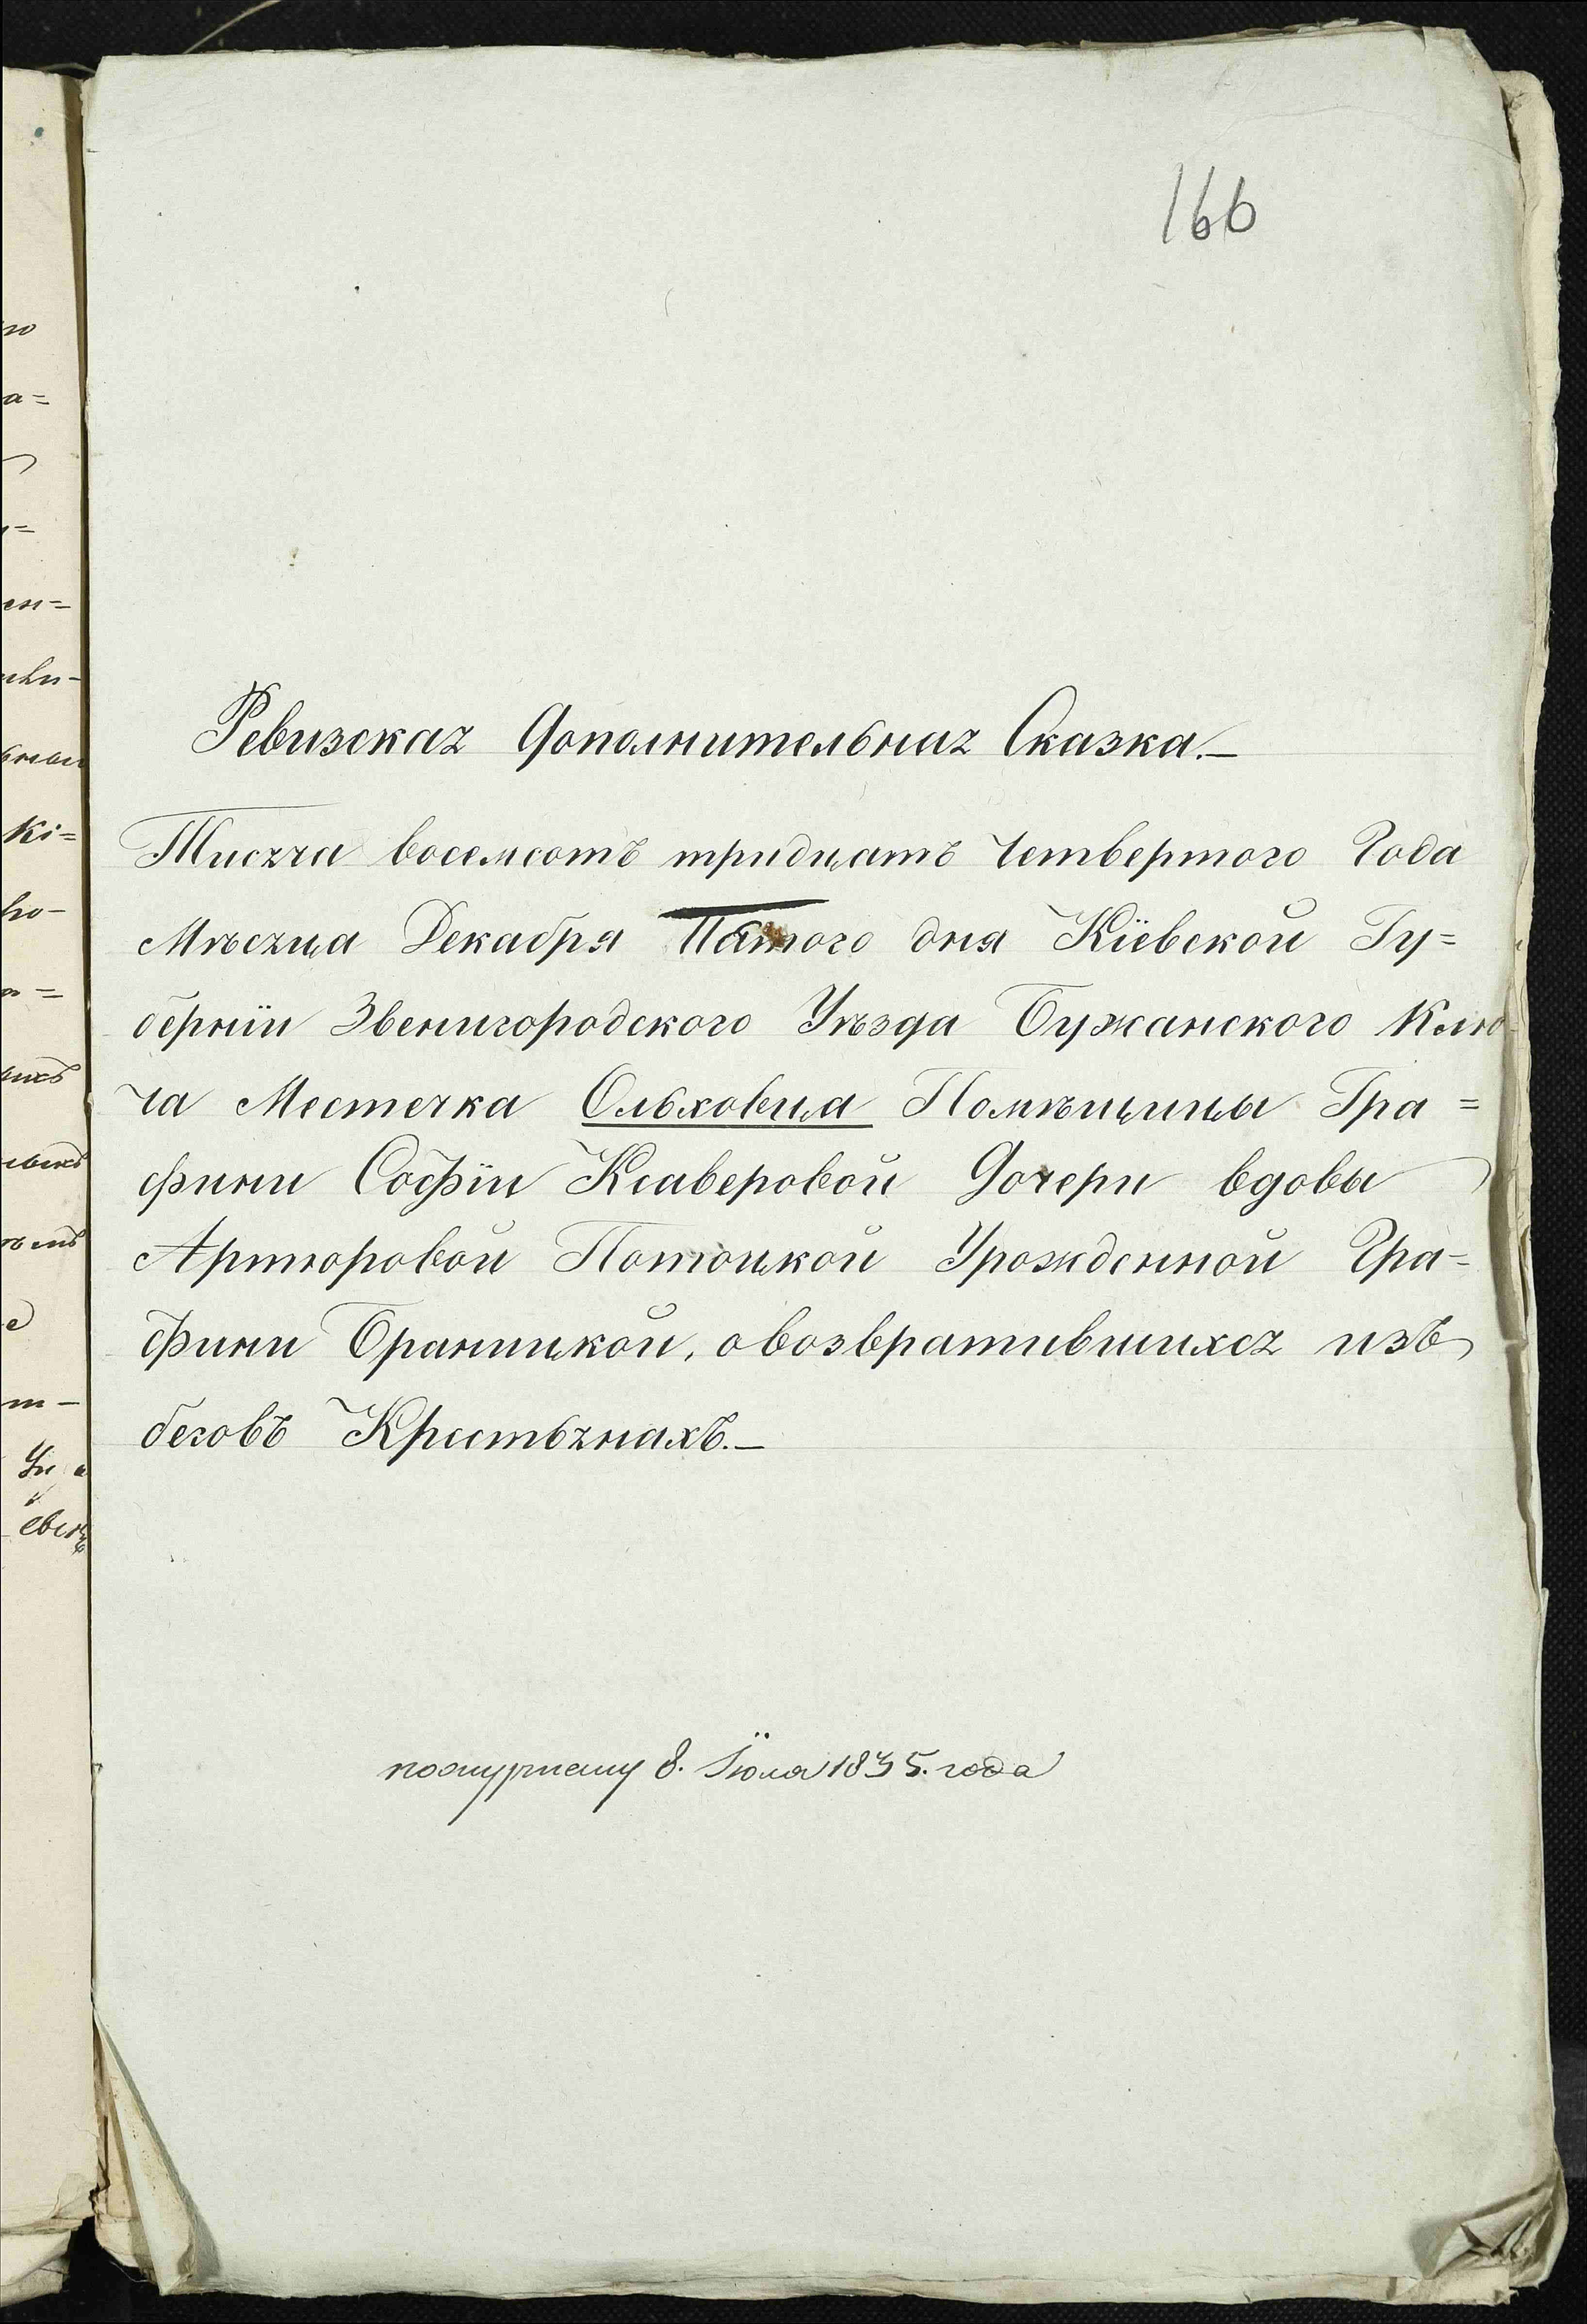 166
Ревизская Дополнительная Сказка.—
Тисяча восемсотъ тридцатъ Четвертого Года
Мѣсяца Декабря Патого дня Кіевской Гу=
берніи Звенигородского Уѣзда Бужанского Клю
ча Местечка Ольховца Помѣщицы Гра=
фини Софіи Ксаверовой Дочери вдовы
Артюровой Потоцкой Урожденной Гра=
фини Браницкой, о возвратившихся изъ
беговъ Крестьянахъ.—
8. Іюля 1835. года